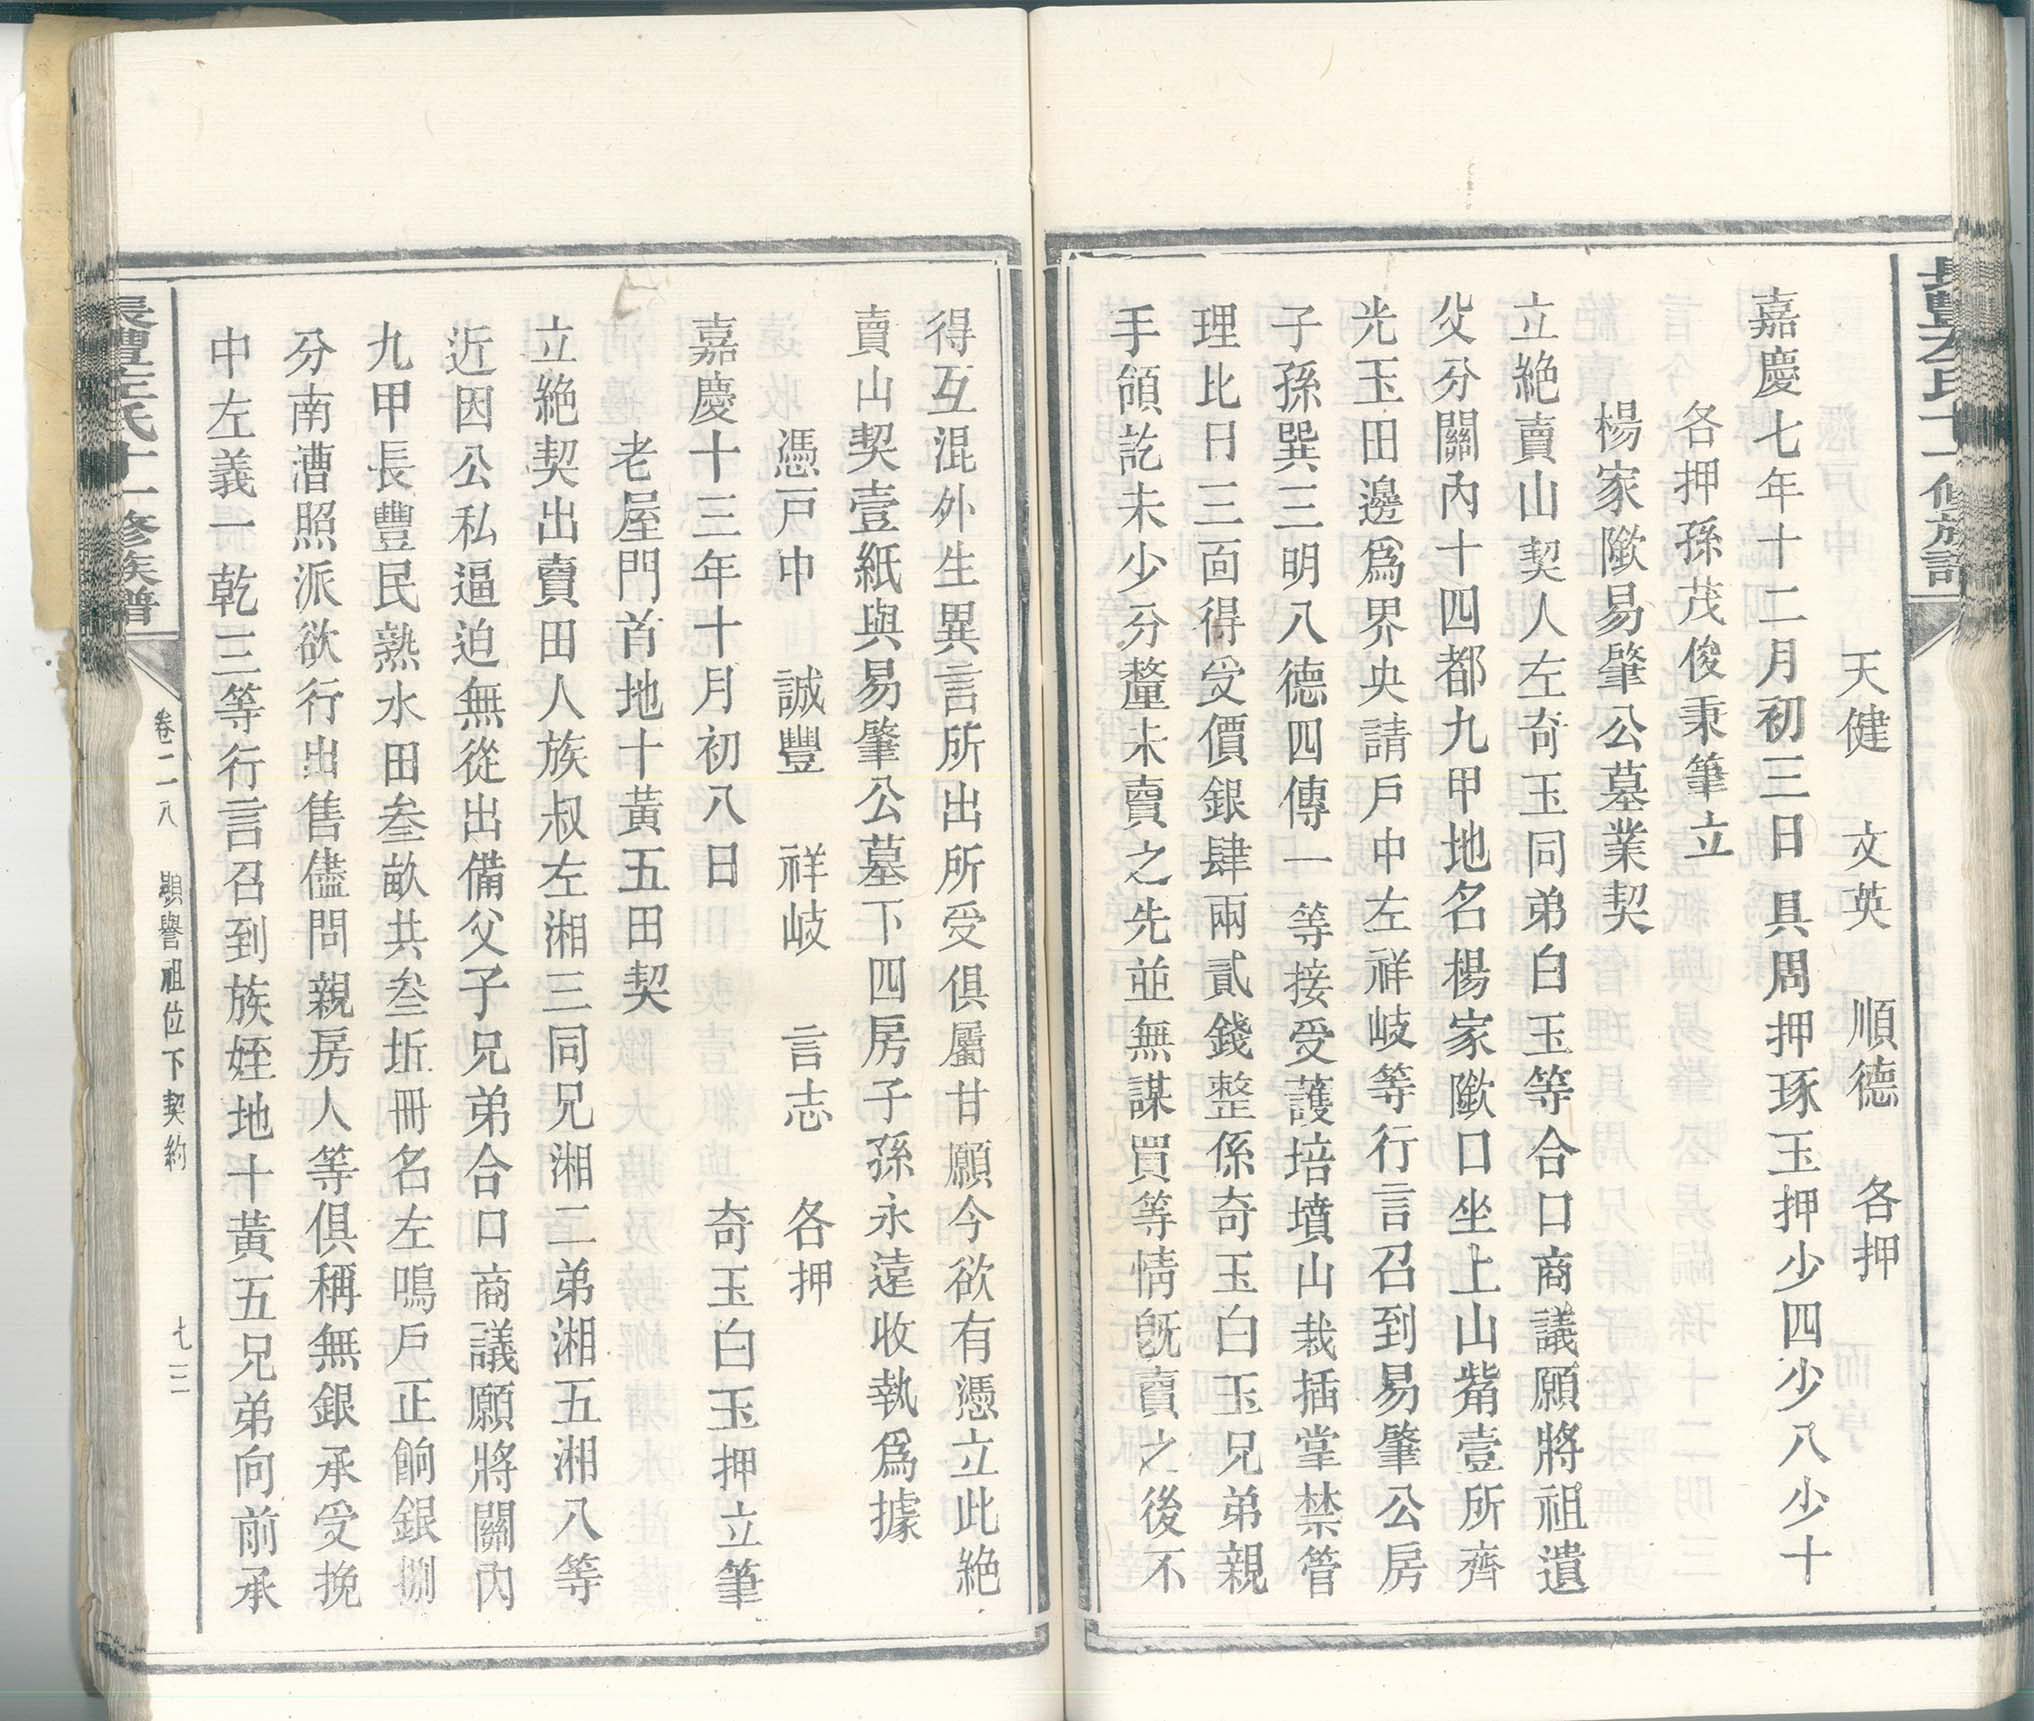 長豐左氏十一修族譜
天健　文英　順德　各押
嘉慶七年十二月初三日具周押琢玉押少四少八少十
各押孫茂俊秉筆立
楊家隞易肇公墓業契
立絶賣山契人左奇玉同弟白玉等合口商議願將祖遺
父分關內十四都九甲地名楊家隞口坐上山觜壹所齊
光玉田邊爲界央請戶中左祥岐等行言召到易肇公房
子孫巽三明八德四傳一等接受護培墳山栽插掌禁管
理比日三面得受價銀肆兩貳錢整係奇玉白玉兄弟親
手領訖未少分釐未賣之先並無謀買等情旣賣之後不
得互混外生異言所出所受俱屬甘願今欲有憑立此絶
賣山契壹紙與易肇公墓下四房子孫永遠收執爲據
憑戸中　誠豐　祥岐　言志　各押
嘉慶十三年十月初八日　奇玉白玉押立筆
老屋門首地十黃五田契
立絶契出賣田人族叔左湘三同兄湘二弟湘五湘八等
近因公私逼迫無從出備父子兄弟合口商議願將關內
九甲長豐民熟水田叁畝共叁坵冊名左鳴戶正餉銀捌
分南漕照派欲行出售儘問親房人等俱稱無銀承受挽
中左義一乾三等行言召到族姪地十黃五兄弟向前承
長豐左氏十一修族譜
卷二八　顯譽祖位下契約　七三